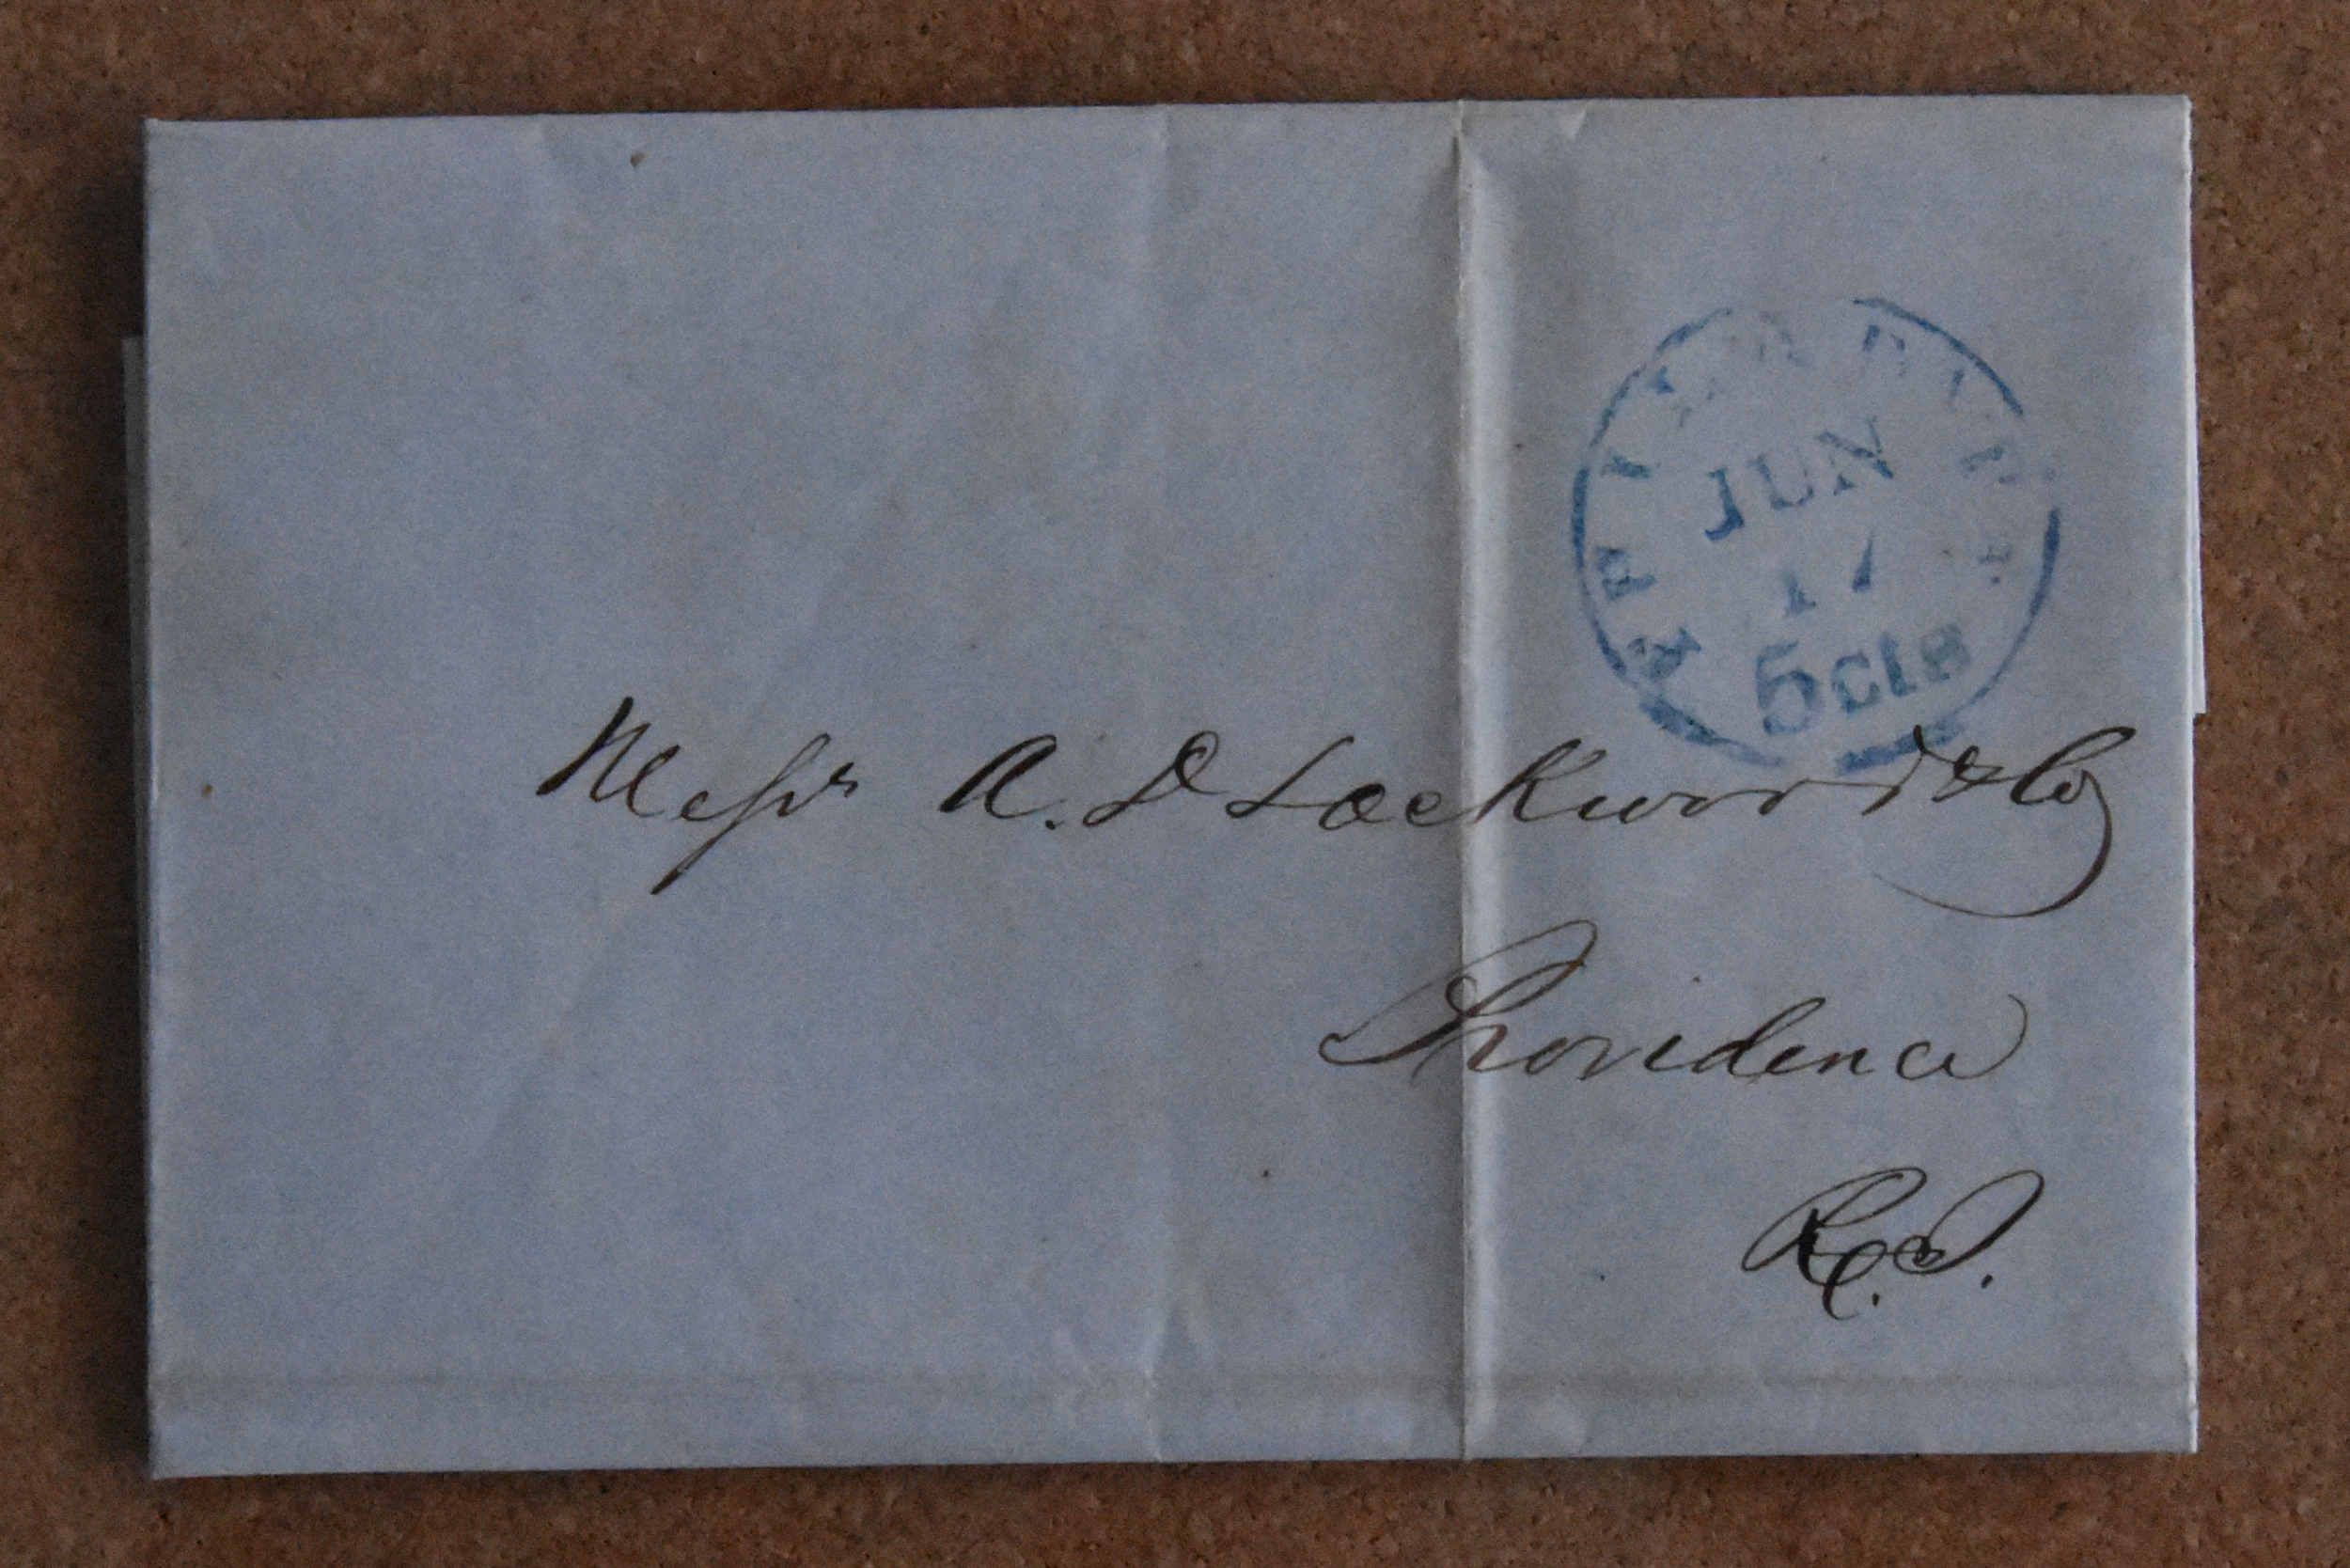 JUN
17
5cts
Messrs A. D Lockwood & Co
Providence
R. I.